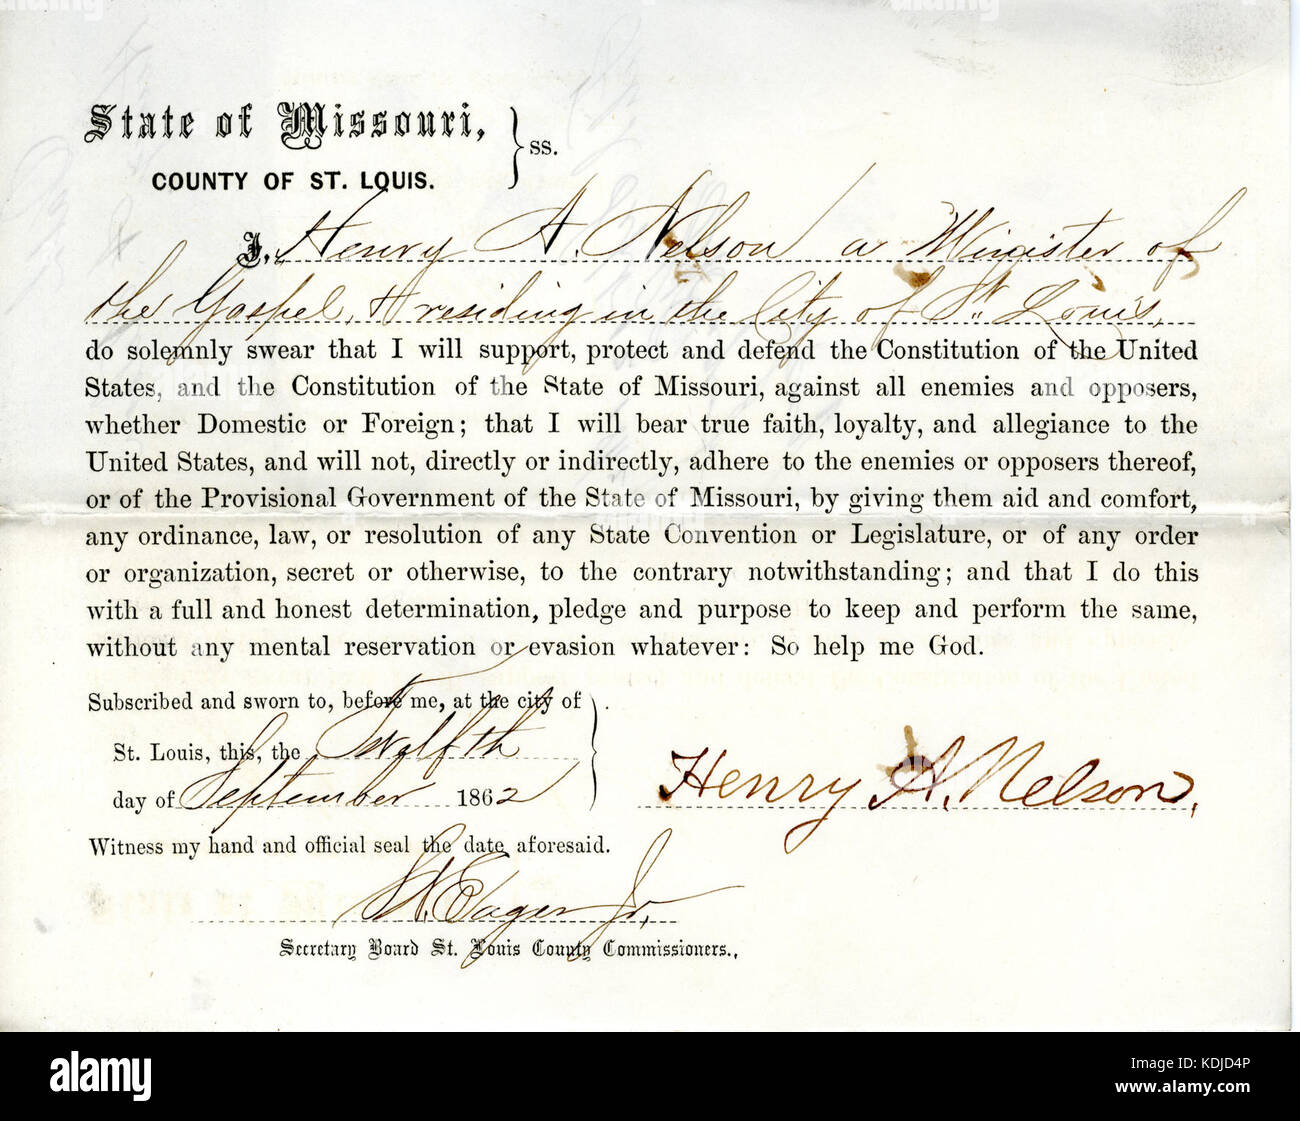 State of Missouri,
COUNTY OF ST. LOUIS. } ss.
I, Henry A. Nelson a Minister of
the Gospel, & residing in the City of St. Louis,
do solemnly swear that I will support, protect and defend the Constitution of the United
States, and the Constitution of the State of Missouri, against all enemies and opposers,
whether Domestic or Foreign; that I will bear true faith, loyalty, and allegiance to the
United States, and will not, directly or indirectly, adhere to the enemies or opposers thereof,
or of the Provisional Government of the State of Missouri, by giving them aid and comfort,
any ordinance, law, or resolution of any State Convention or Legislature, or of any order
or organization, secret or otherwise, to the contrary notwithstanding; and that I do this
with a full and honest determination, pledge and purpose to keep and perform the same,
without any mental reservation or evasion whatever: So help me God.
Subscribed and sworn to, before me, at the city of
St. Louis, this, the Twelfth
day of September 1862
Henry A. Nelson,
Witness my hand and official seal the date aforesaid.
W. Eager Jr.
Secretary Board St. Louis County Commissioners.,
alamy
Image ID: KDJD4P
www.alamy.com